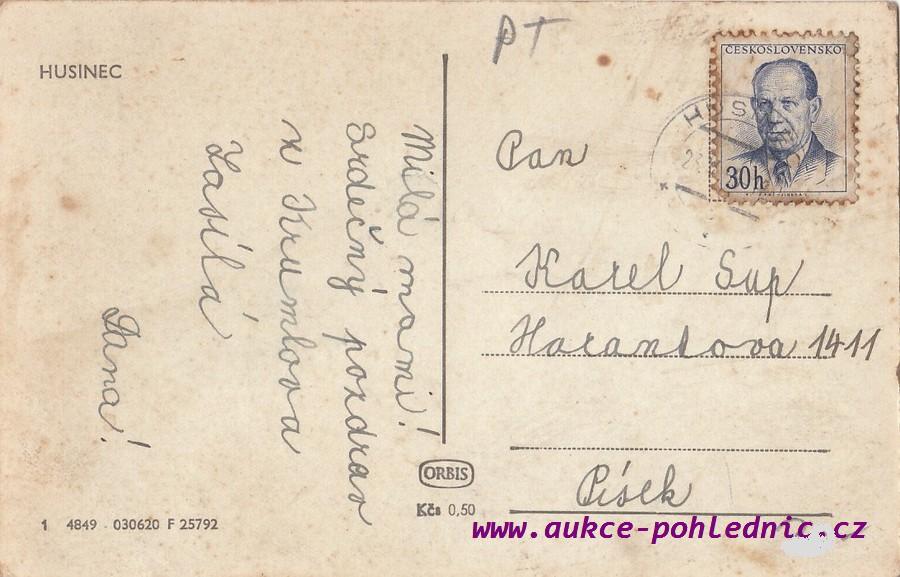 HUSINEC
Milá mami!
Srdečný pozdrav
z Krumlova
Zasílá
Dana!
1 4849 - 030620 F 25792
ORBIS
Kčs 0,50
PT
ČESKOSLOVENSKO
30h
HUS
Pan
Karel Sup
Harantova 1411
Písek
www.aukce-pohlednic.cz